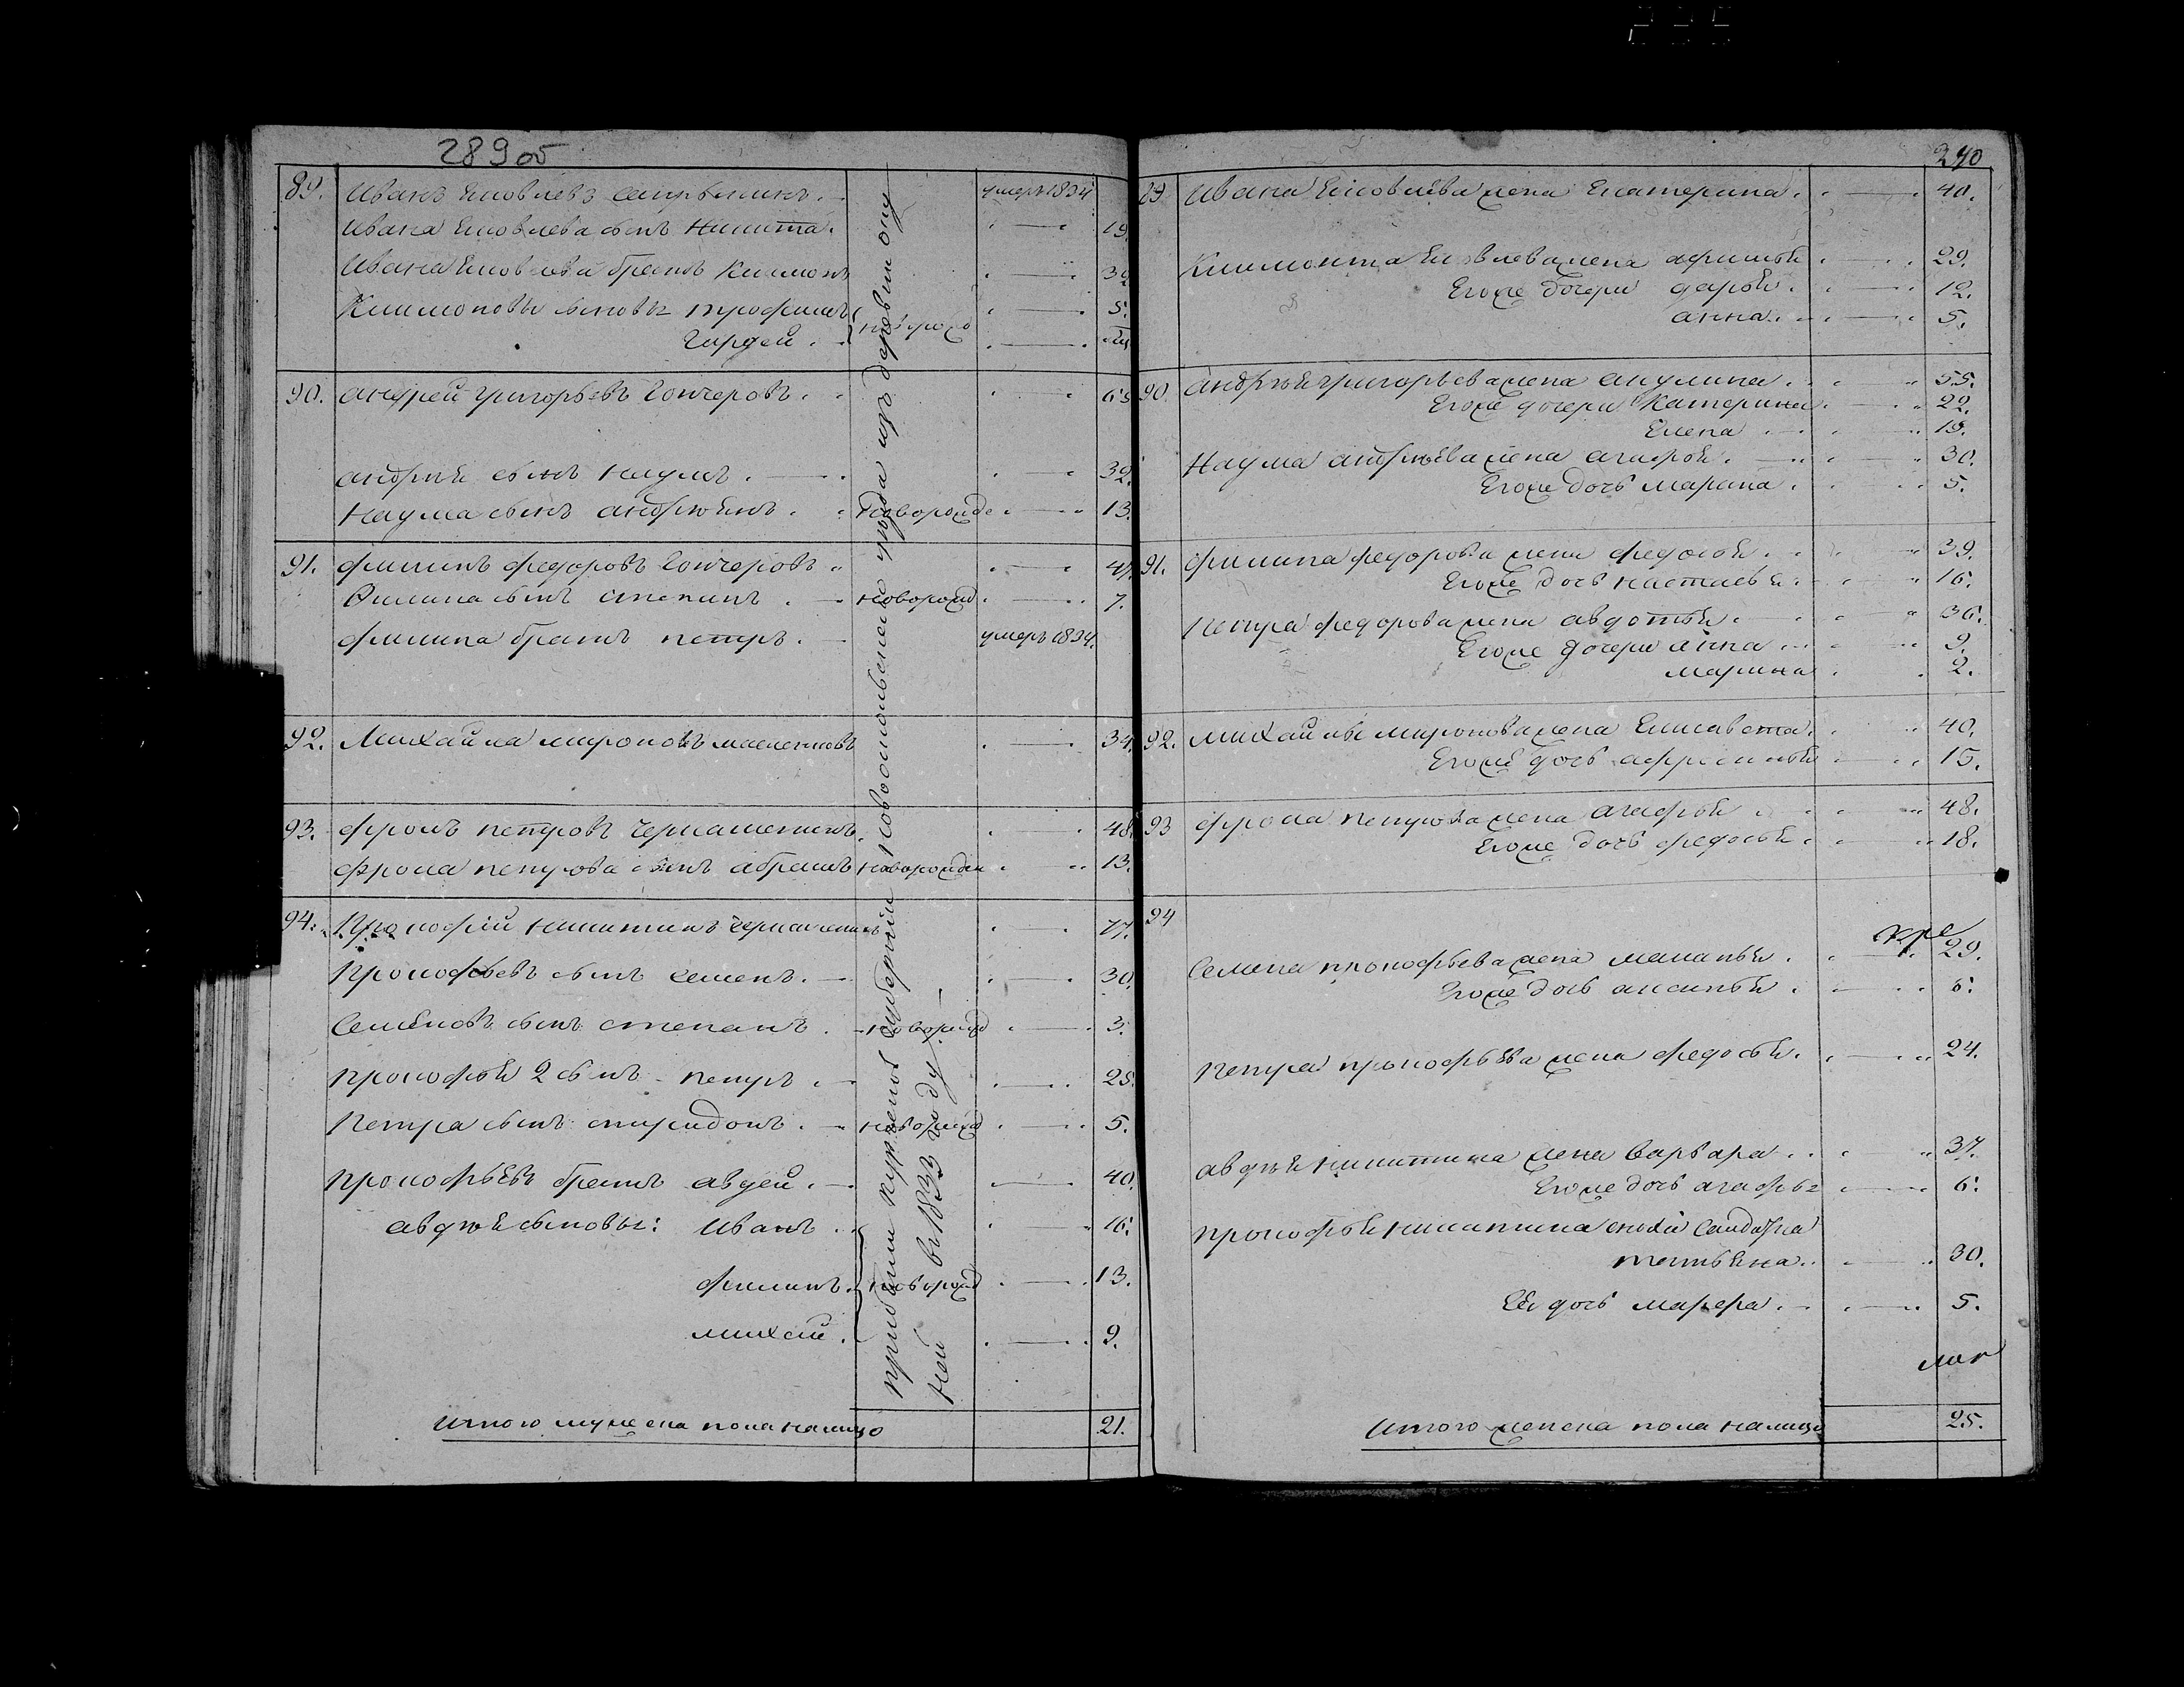 289 об
89. Иванъ Яковлевъ . умеръ 1834
Ивана Яковлева сынъ Никита. 19.
Ивана Яковлева братъ Климонъ 32
Климоновы сыновья трофимъ 5.
Гардей. новорожд
90. андрей григорьевъ Гончеровъ.
андрея сынъ Наумъ. 32.
Наума сынъ андреянъ. новорожде 13.
91. филипъ федоровъ Гончеровъ
Филипа сынъ степанъ. новорожд. 7.
филипа братъ петръ. умеръ 1834.
92. Михайла мироновъ 34.
93. фролъ петровъ Чермашенцовъ 48.
фрола петрова сынъ абрамъ новорожден 13.
94. Прокофiй никитинъ
Прокофьевъ сынъ семенъ. 30.
Семеновъ сынъ степанъ. новорожд 3.
прокофья 2 сынъ петръ. 28.
Петра сынъ спиридонъ. новорожд 5.
прокофьевъ братъ авдей. 40.
авдея сыновья: Иванъ 16.
филипъ. новорожд 13.
михей. 9.
прибыли курской губернiи новооскольскаго уезда изъ деревни
ней въ 1833 году.
итого мужеска пола налицо 21.
290
89 Ивана Яковлева жена Екатерина. 40.
Климонта Яковлева жена афимья 29.
Егоже дочери дарья. 12.
анна. 5.
90. андрея григорьева жена акулина. 55.
Егоже дочери Катерина. 22.
Елена 19.
Наума андреева жена агафья. 30.
Егоже дочь марина. 5.
91. филипа федорова жена федосья. 39.
Егоже дочь настасья. 16.
Петра федорова жена авдотья. 36.
Егоже дочери анна 9.
марина 2.
92. михайлы миронова жена Елисавета. 40.
Егоже дочь афросинья 15.
93 фрола петрова жена агафья 48.
Егоже дочь федосья. 18.
94
Семена прокофьева жена маланья. 29.
Егоже дочь аксинья. 6.
Петра прокофьева жена федосья. 24.
авдея никитина жена варвара. 37.
Егоже дочь агафья 6.
прокофья никитина сноха Салдатка
татьяна. 30.
Ея дочь марфа. 5.
итого женска пола налицо 25.